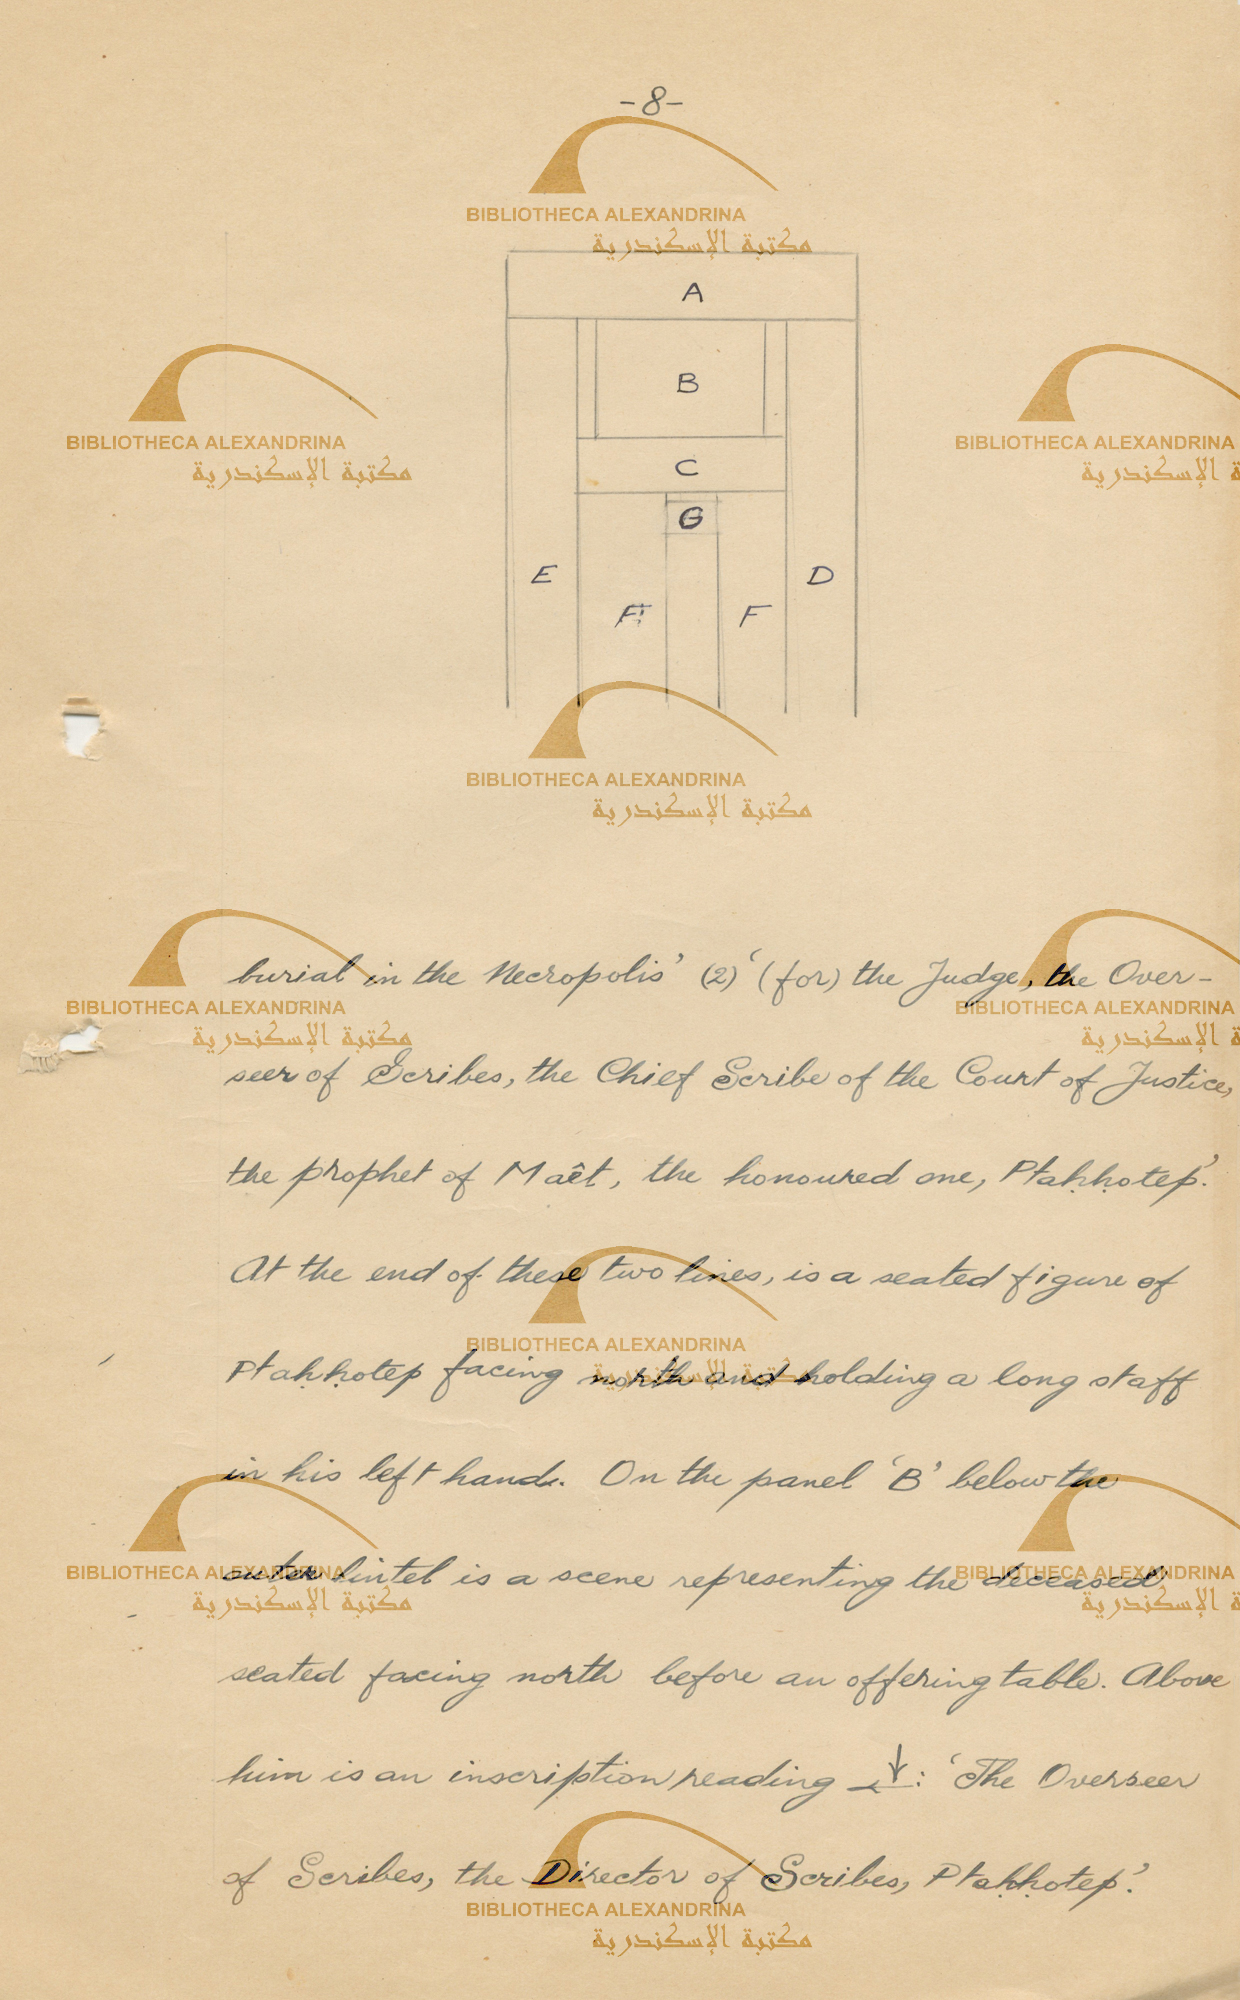 -8-
A
B
C
G
E
D
F
burial in the Necropolis' (2) '(for) the Judge, the Over-
seer of Scribes, the Chief Scribe of the Court of Justice,
the prophet of Maêt, the honoured one, Ptaḥḥotep'.
At the end of these two lines, is a seated figure of
Ptaḥḥotep facing north and holding a long staff
in his left hand. On the panel 'B' below the
outer lintel is a scene representing the deceased
seated facing north before an offering table. Above
him is an inscription reading ↓: 'The Overseer
of Scribes, the Director of Scribes, Ptaḥḥotep'.
BIBLIOTHECA ALEXANDRINA
مكتبة الإسكندرية
BIBLIOTHECA ALEXANDRINA
مكتبة الإسكندرية
BIBLIOTHECA ALEXANDRINA
مكتبة الإسكندرية
BIBLIOTHECA ALEXANDRINA
مكتبة الإسكندرية
BIBLIOTHECA ALEXANDRINA
مكتبة الإسكندرية
BIBLIOTHECA ALEXANDRINA
مكتبة الإسكندرية
BIBLIOTHECA ALEXANDRINA
مكتبة الإسكندرية
BIBLIOTHECA ALEXANDRINA
مكتبة الإسكندرية
BIBLIOTHECA ALEXANDRINA
BIBLIOTHECA ALEXANDRINA
BIBLIOTHECA ALEXANDRINA